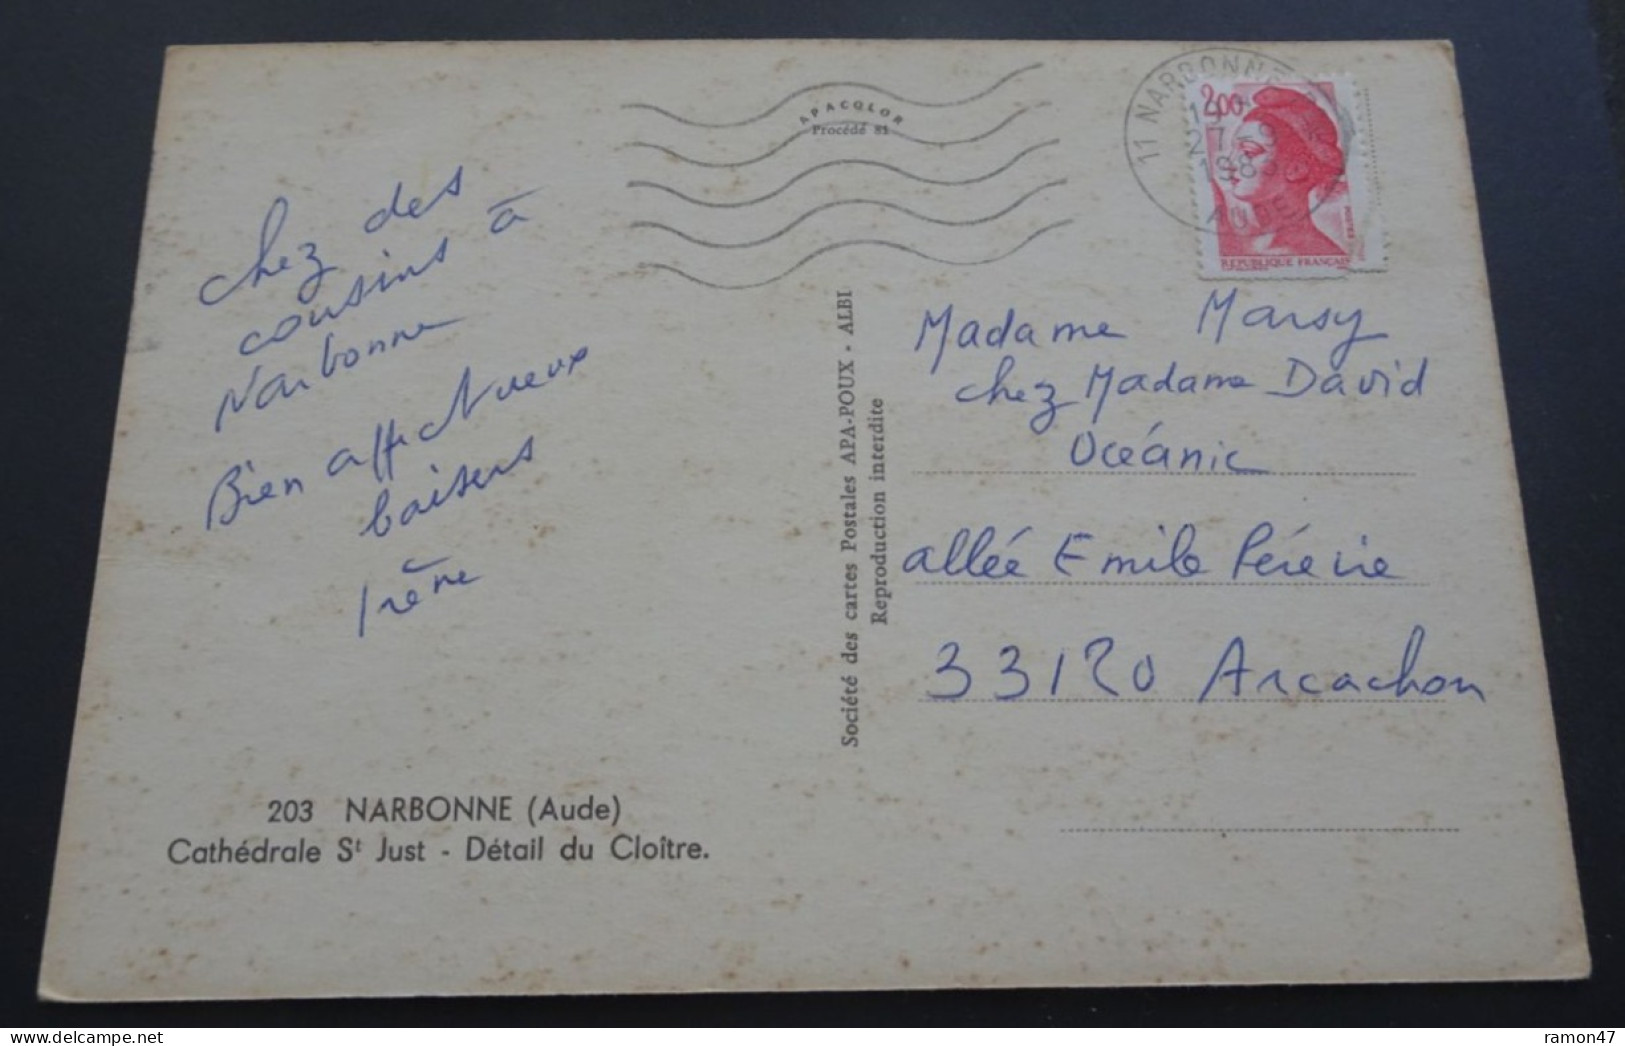 APACOLOR
Procédé 85
11 NARBONNE
AUDE
2,00
REPUBLIQUE FRANCAISE
chez des
cousins à
Narbonne
Bien affectueux
baisers
Irène
203 NARBONNE (Aude)
Cathédrale St Just - Détail du Cloître.
Société des cartes Postales APA-POUX - ALBI
Reproduction interdite
Madame Marsy
chez Madame David
Océanic
allée Emile Péreire
33120 Arcachon
ramon47